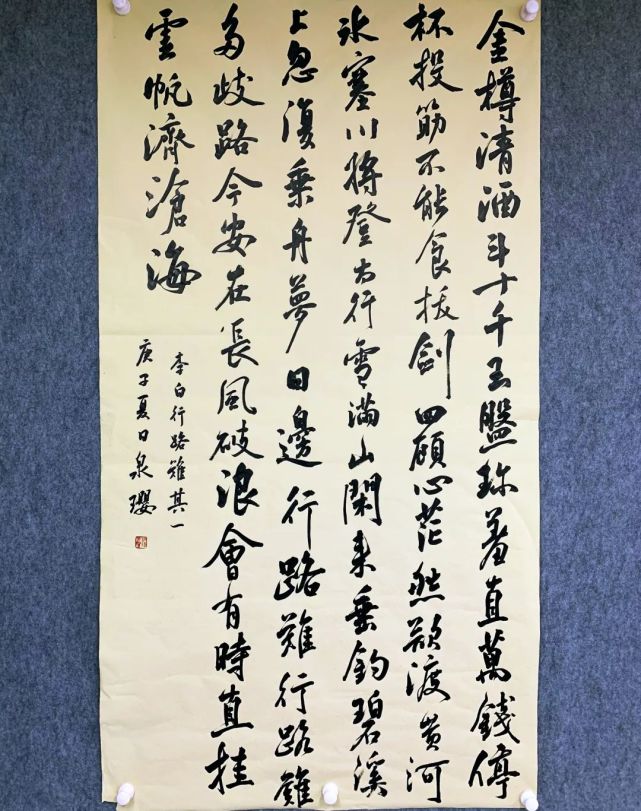 金樽清酒斗十千玉盤珎羞直萬錢停
杯投筯不能食拔劍四顧心茫然欲渡黄河
冰塞川將登太行雪滿山閑来垂釣碧溪
上忽復乗舟夢日邊行路難行路難
多歧路今安在長風破浪會有時直挂
雲帆濟滄海
李白行路難其一
庚子夏日泉璎